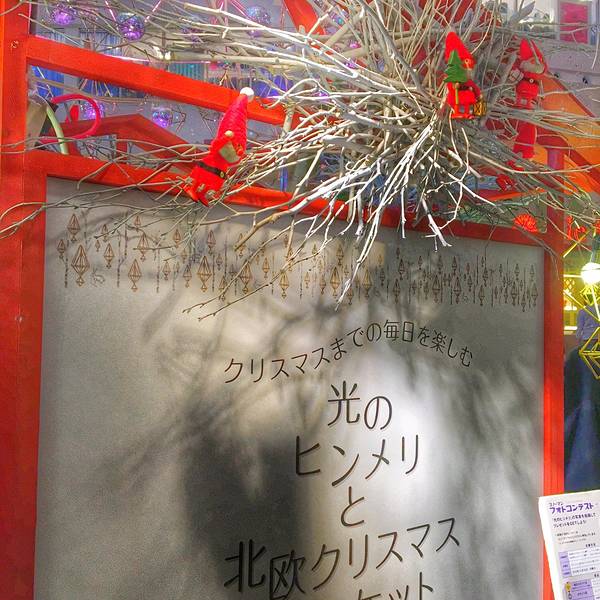 クリスマスまでの毎日を楽しむ
光の
ヒンメリ
と
北欧クリスマス
ケット
フォトコンテスト